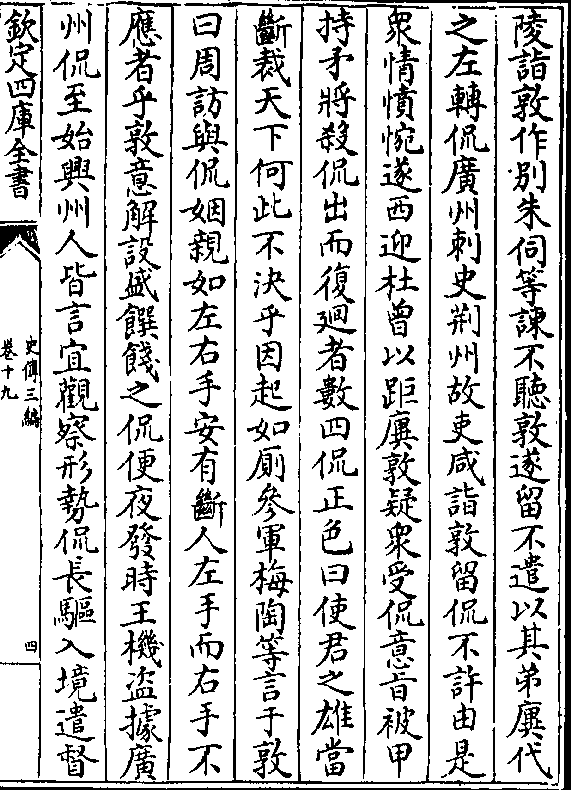 陵詣敦作別朱伺等諫不聽敦遂留不遣以其弟廙代
之左轉侃廣州刺史荊州故吏咸詣敦留侃不許由是
衆情憤惋遂西迎杜曾以距廙敦疑衆受侃意旨被甲
持矛將殺侃出而復廻者數四侃正色曰使君之雄當
斷裁天下何此不決乎因起如厠參軍梅陶等言于敦
曰周訪與侃姻親如左右手安有斷人左手而右手不
應者乎敦意解設盛饌餞之侃便夜發時王機盜據廣
州侃至始興州人皆言宜觀察形勢侃長驅入境遣督
欽定四庫全書
史傳三編
卷十九
四